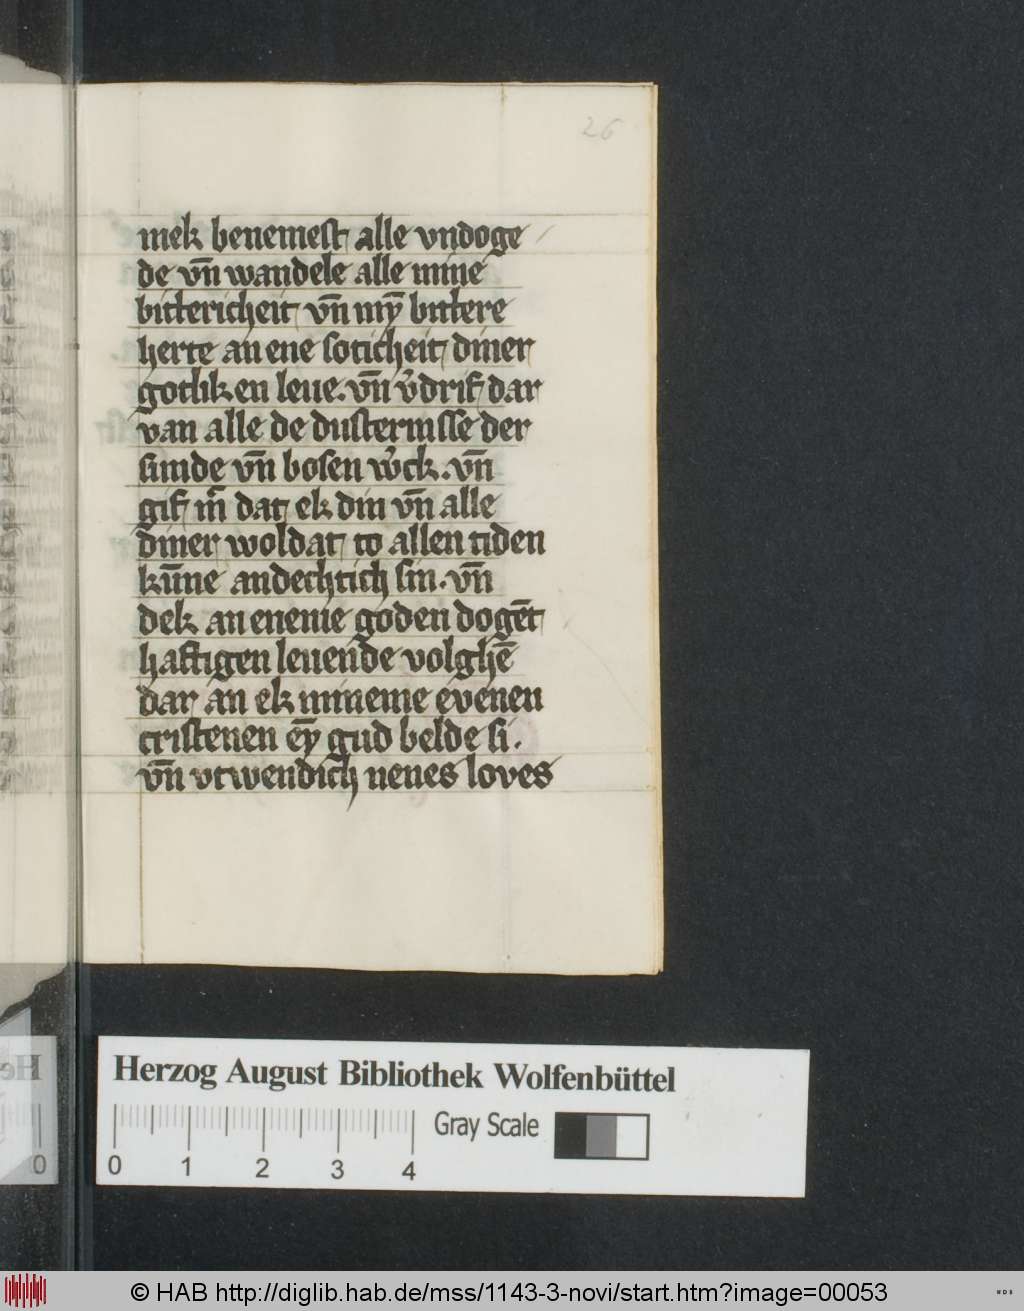 26
mek benemest alle vndoge
de vn̄ wandele alle mine
bittericheit vn̄ mȳ bittere
herte an ene soticheit diner
gotliken leue. vn̄ v̓drif dar
van alle de dusternisse der
sunde vn̄ bosen w̓ck. vn̄
gif m̄ dat ek din vn̄ alle
diner woldat to allen tiden
kūne andechtich sin. vn̄
dek an eneme goden dogēt
haftigen leuende volghē
dar an ek mineme evenen
cristenen eȳ gud belde si.
vn̄ vtwendich neues loves
Herzog August Bibliothek Wolfenbüttel
0 1 2 3 4 Gray Scale
© HAB http://diglib.hab.de/mss/1143-3-novi/start.htm?image=00053